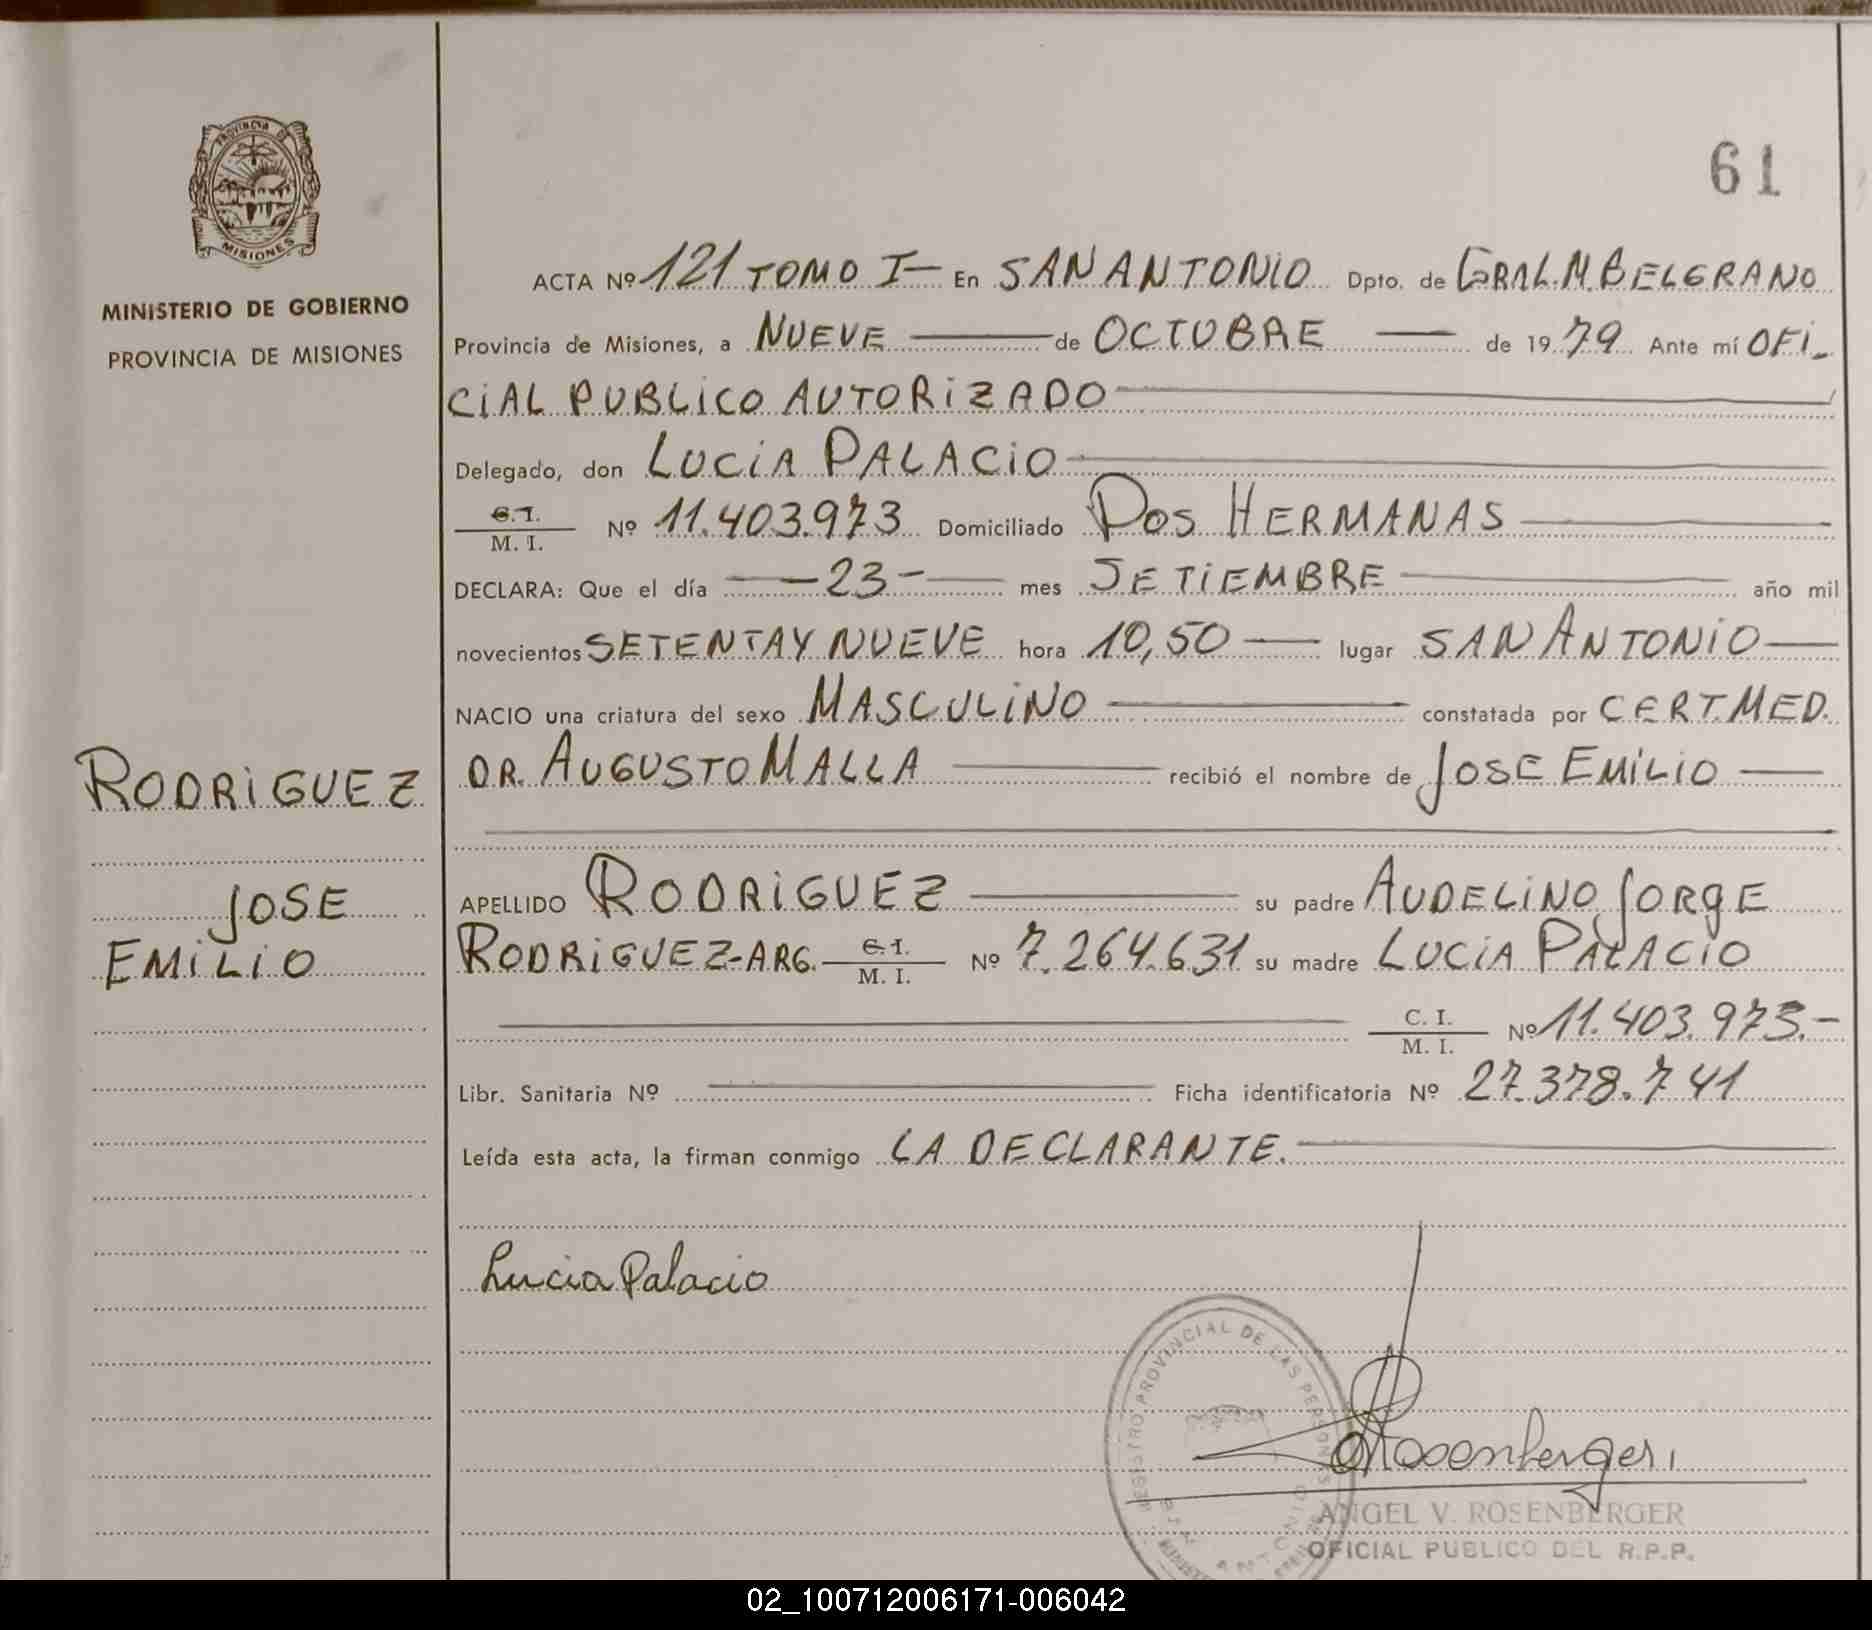 PROVINCIA DE
MISIONES
MINISTERIO DE GOBIERNO
PROVINCIA DE MISIONES
RODRIGUEZ
JOSE
EMILIO
61
ACTA Nº 121 TOMO I- En SAN ANTONIO Dpto. de GRAL.M.BELGRANO
Provincia de Misiones, a NUEVE de OCTUBRE de 1979 Ante mí OFI-
CIAL PUBLICO AUTORIZADO
Delegado, don LUCIA PALACIO
C.I. / M. I. Nº 11.403.973 Domiciliado DOS HERMANAS
DECLARA: Que el día -23- mes SETIEMBRE año mil
novecientos SETENTA Y NUEVE hora 10,50 lugar SAN ANTONIO
NACIO una criatura del sexo MASCULINO constatada por CERT.MED.
DR. AUGUSTO MALLA recibió el nombre de JOSE EMILIO
APELLIDO RODRIGUEZ su padre AUDELINO JORGE
RODRIGUEZ-ARG. C.I. / M. I. Nº 7.264.631 su madre LUCIA PALACIO
C. I. / M. I. Nº 11.403.973.-
Libr. Sanitaria Nº Ficha identificatoria Nº 27.378.741
Leída esta acta, la firman conmigo LA DECLARANTE.
Lucia Palacio
REGISTRO PROVINCIAL DE LAS PERSONAS
Rosenberger
ANGEL V. ROSENBERGER
OFICIAL PUBLICO DEL R.P.P.
02_100712006171-006042